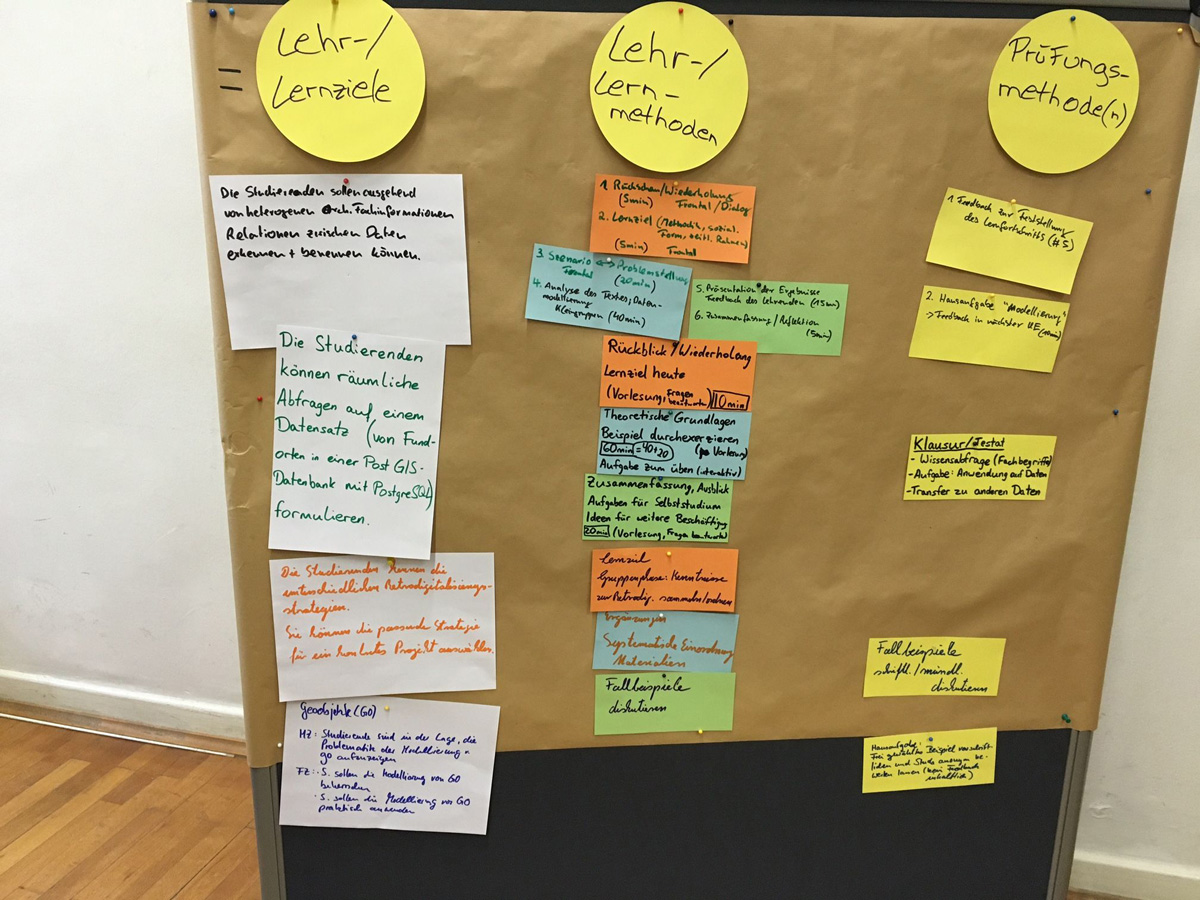 =
Lehr-/
Lernziele
Die Studierenden sollen ausgehend
von heterogenen arch. Fachinformationen
Relationen zwischen Daten
erkennen + benennen können.
Die Studierenden
können räumliche
Abfragen auf einem
Datensatz (von Fund-
orten in einer Post GIS-
Datenbank mit PostgreSQL)
formulieren.
Die Studierenden kennen die
unterschiedlichen Retrodigitalisierungs-
strategien.
Sie können die passende Strategie
für ein konkretes Projekt auswählen.
Geoobjekte (GO)
Studierende sind in der Lage, die
Problematik der Modellierung
GO aufzuzeigen
FZ: - S. sollen die Modellierung von GO
beherrschen
- S. sollen die Modellierung von GO
praktisch anwenden
Lehr-/
Lern-
methoden
1. Rückschau/Wiederholung
(5min) Frontal/Dialog
2. Lernziel (Methodik, sozial.
Form, zeitl. Rahmen)
(5min) Frontal
3. Szenario <-> Problemstellung
Frontal (20min)
4. Analyse des Textes; Daten-
modellierung
Kleingruppen (40min)
5. Präsentation der Ergebnisse
Feedback des Lehrenden (15min)
6. Zusammenfassung/Reflektion
(5min)
Rückblick/Wiederholung
Lernziel heute
(Vorlesung, Fragen
beantworten) 10min
Theoretische Grundlagen
Beispiel durchexerzieren
60min = 40+20 Vorlesung)
Aufgabe zum üben (interaktiv)
Zusammenfassung, Ausblick
Aufgaben für Selbststudium
Ideen für weitere Beschäftigung
20min (Vorlesung, Fragen beantworten)
Lernziel
Gruppenphase: Kenntnisse
zur Retrodig. sammeln/ordnen
Ergänzungen
Systematische Einordnung
Materialien
Fallbeispiele
diskutieren
Prüfungs-
methode(n)
1. Feedback zur Feststellung
des Lernfortschritts (#5)
2. Hausaufgabe "Modellierung"
-> Feedback in nächster UE (10min)
Klausur/Testat
- Wissensabfrage (Fachbegriffe)
- Aufgabe: Anwendung auf Daten
- Transfer zu anderen Daten
Fallbeispiele
schriftl./mündl.
diskutieren
Hausaufgabe:
Frei gewähltes Beispiel